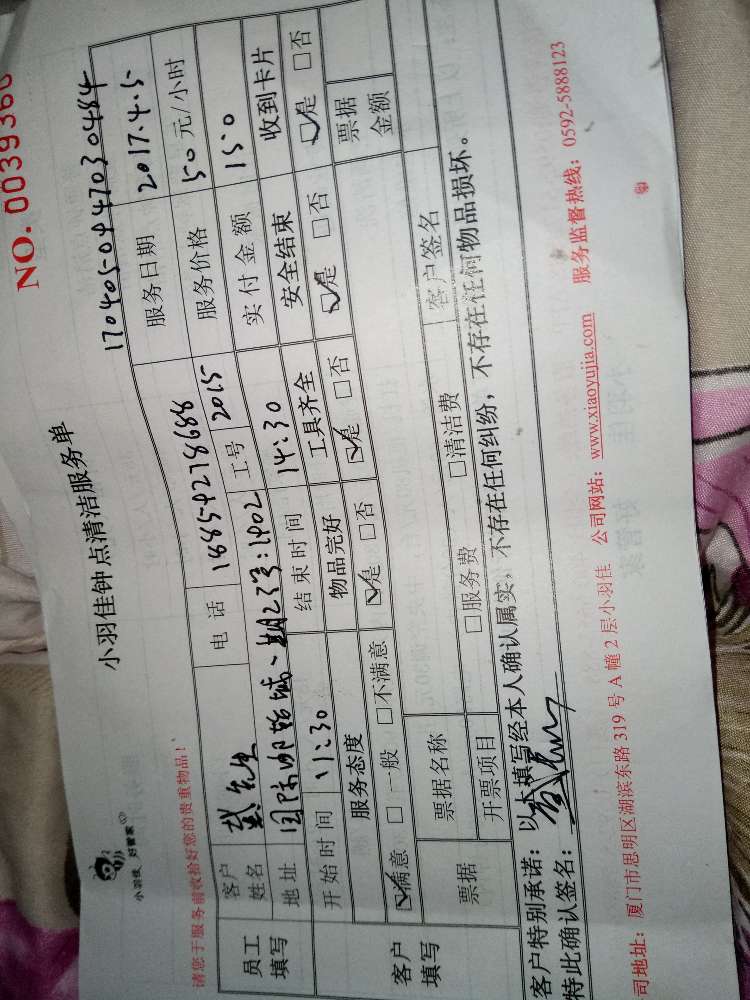 小羽佳 好管家
小羽佳钟点清洁服务单
NO. 003936
170405-0447030484
请您于服务前收拾好您的贵重物品！
员工填写
客户姓名 戴先生 电话 18854278688 服务日期 2017.4.5
地址 国际邮轮城一期23号:1402 工号 2015 服务价格 50 元/小时
开始时间 11:30 结束时间 14:30 实付金额 150
客户填写
服务态度 物品完好 工具齐全 安全结束 收到卡片
☑满意 □一般 □不满意 ☑是 □否 ☑是 □否 ☑是 □否 ☑是 □否
票据 票据名称 票据金额
开票项目 □服务费 □清洁费 客户签名
客户特别承诺：以上填写经本人确认属实，不存在任何纠纷，不存在任何物品损坏。
特此确认签名：
司地址：厦门市思明区湖滨东路 319 号 A 幢 2 层小羽佳 公司网站：www.xiaoyujia.com 服务监督热线：0592-5888123